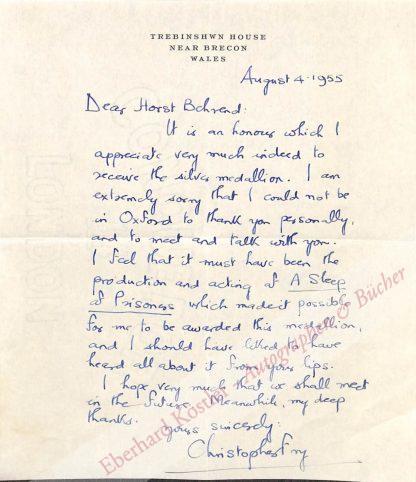 TREBINSHWN HOUSE
NEAR BRECON
WALES
August 4. 1955
Dear Horst Behrend.
It is an honour which I
appreciate very much indeed to
receive the silver medallion. I am
extremely sorry that I could not be
in Oxford to thank you personally,
and to meet and talk with you.
I feel that it must have been the
production and acting of A Sleep
of Prisoners which made it possible
for me to be awarded this medallion,
and I should have liked to have
heard all about it from your lips.
I hope very much that we shall meet
in the future. Meanwhile, my deep
thanks.
Yours sincerely.
Christopher Fry
Eberhard Köstler Autographen & Bücher